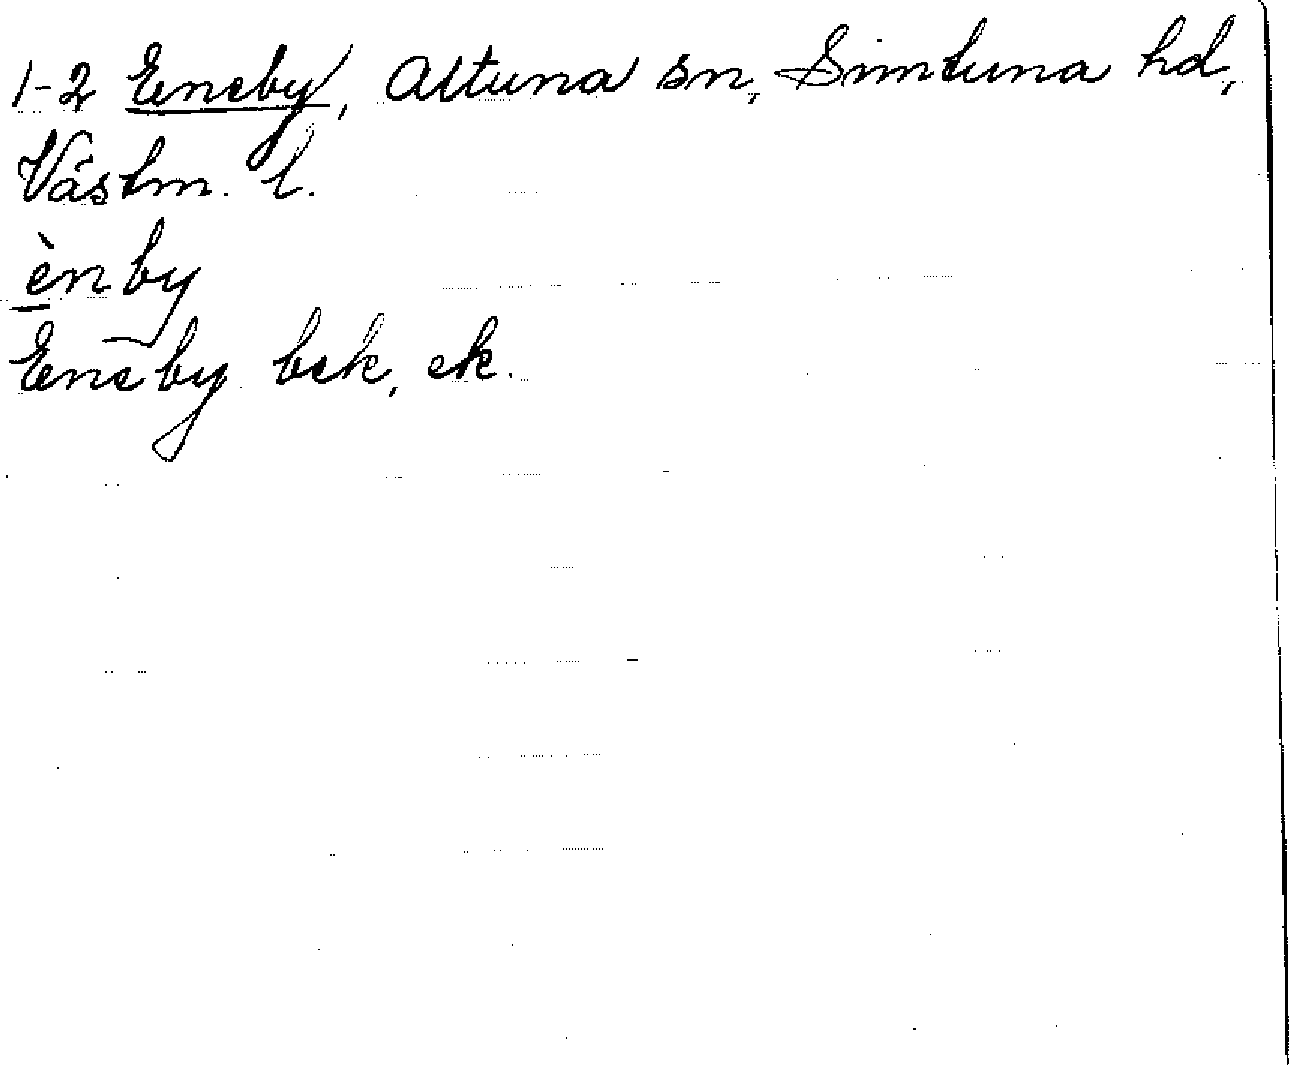 1-2 Eneby, Altuna sn, Simtuna hd,
Västm. l.
ènby
Eneby bek, ek.